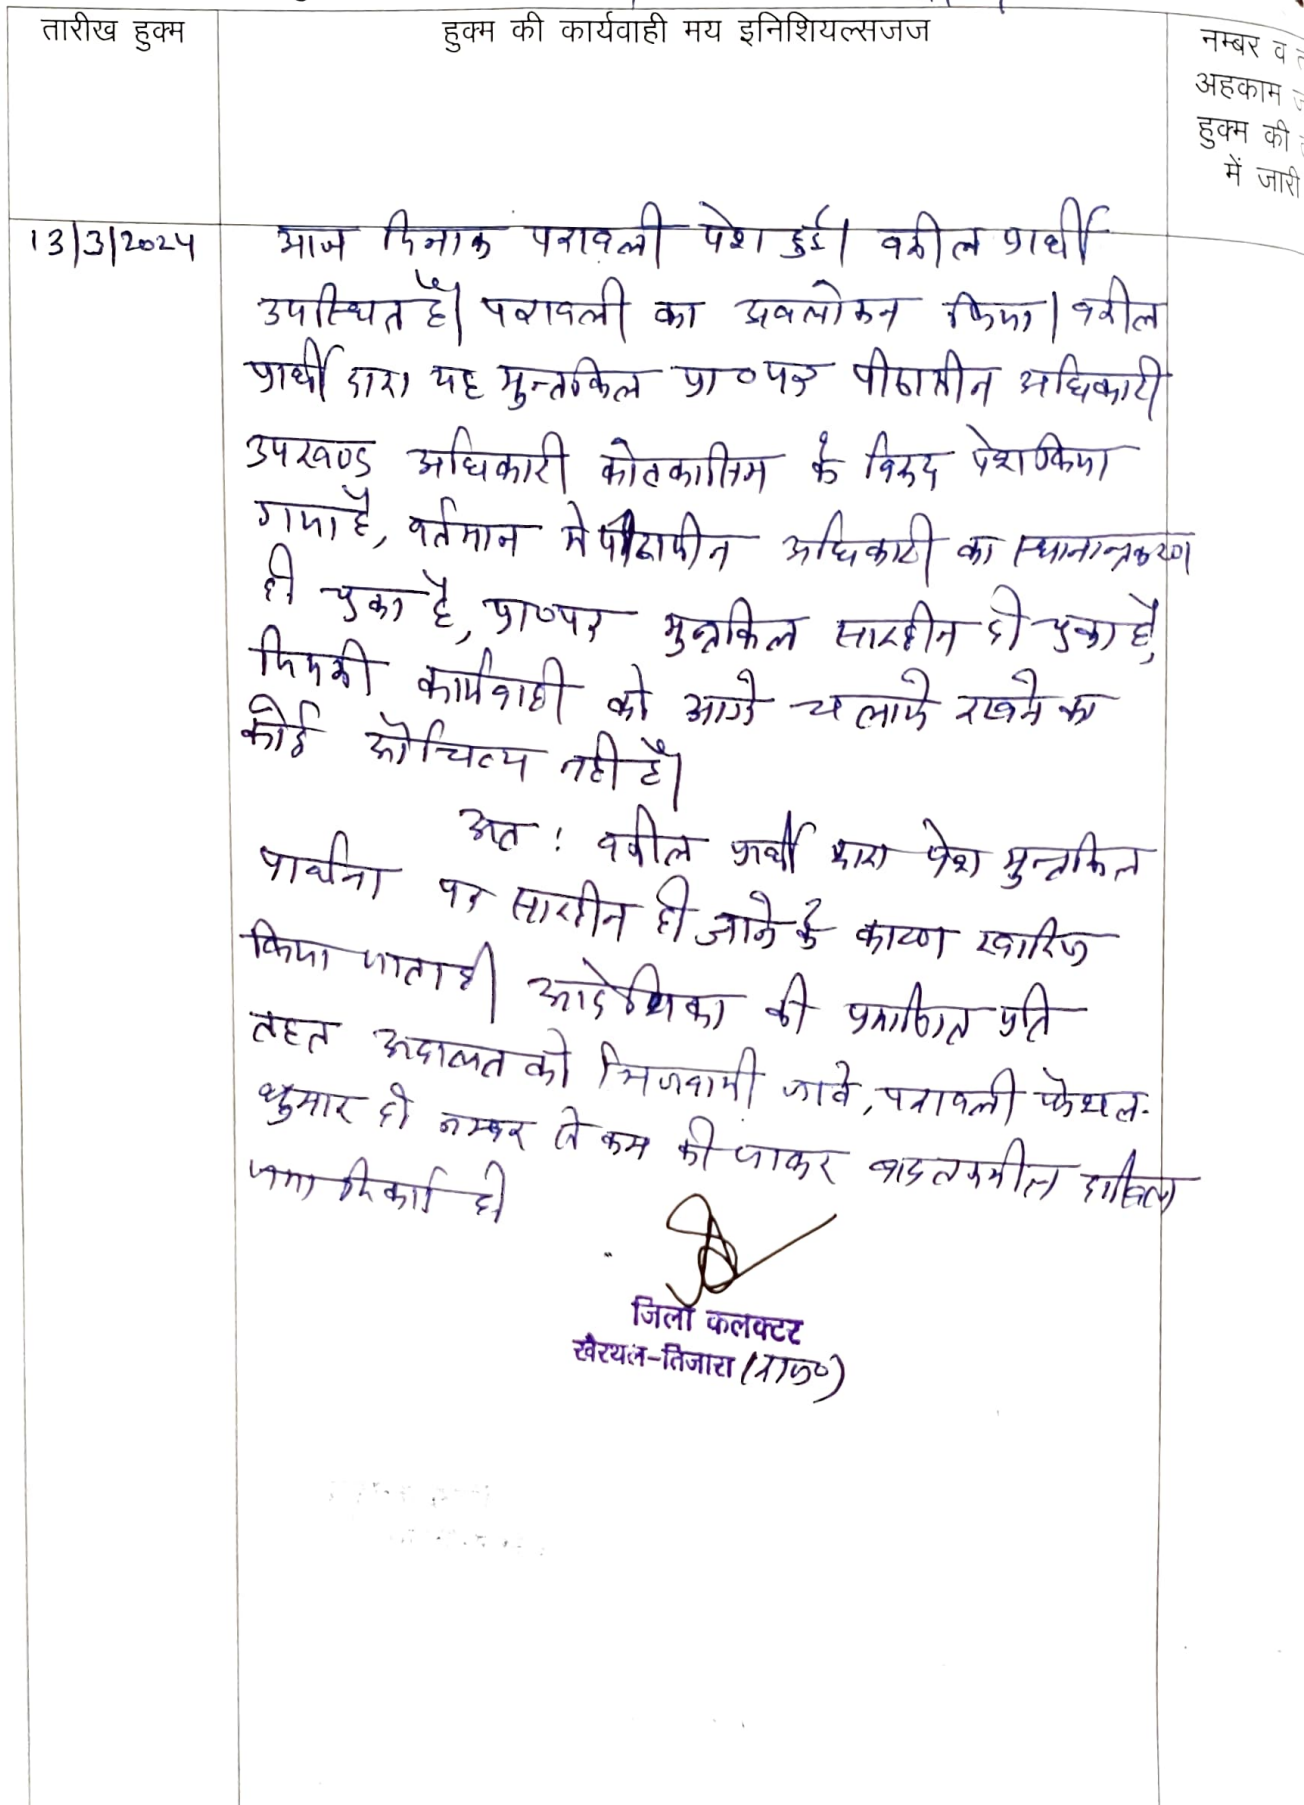 तारीख हुक्म
हुक्म की कार्यवाही मय इनिशियल्सजज
नम्बर व
अहकाम
हुक्म की
में जारी
13/3/2024
आज दिनाक पत्रावली पेश हुई। वकील प्रार्थी
उपस्थित है। पत्रावली का अवलोकन किया। वकील
प्रार्थी द्वारा यह मुन्तकिल प्रा०पत्र पीठासीन अधिकारी
उपखण्ड अधिकारी कोटकासिम के विरूद्ध पेश किया
गया है, वर्तमान मे पीठासीन अधिकारी का स्थानान्त्रकरण
हो चुका है, प्रा०पत्र मुन्तकिल सारहीन हो चुका है,
जिसकी कार्यवाही को आगे चलाये रखने का
कोई औचित्य नही है।
अत: वकील प्रार्थी द्वारा पेश मुन्तकिल
प्रार्थना पत्र सारहीन हो जाने के कारण खारिज
किया जाता है। आदेशिका की प्रमाणित प्रति
तहत अदालत को भिजवायी जावे, पत्रावली फैशल-
शुमार हो नम्बर से कम की जाकर बाद तकमील दाखिल
जमा रिकार्ड हो
जिला कलक्टर
खैरथल-तिजारा (राज०)